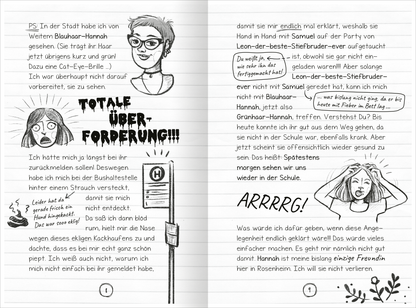 PS: In der Stadt habe ich von
Weitem Blauhaar-Hannah
gesehen. (Sie trägt ihr Haar
jetzt übrigens kurz und grün!
Dazu eine Cat-Eye-Brille ...)
Ich war überhaupt nicht darauf
vorbereitet, sie zu sehen.
TOTALE
ÜBER-
FORDERUNG!!!
Ich hätte mich ja längst bei ihr
zurückmelden sollen! Deswegen
habe ich mich bei der Bushaltestelle
hinter einem Strauch versteckt,
damit sie mich
nicht entdeckt.
Da saß ich dann blöd
rum, hielt mir die Nase
Leider hat da
gerade frisch ein
Hund hingekackt.
Das war sooo eklig!
wegen dieses ekligen Kackhaufens zu und
dachte, dass es bei mir echt ganz schön
piept. Ich weiß auch nicht, warum ich
mich nicht einfach bei ihr gemeldet habe,
H
damit sie mir endlich mal erklärt, weshalb sie
Hand in Hand mit Samuel auf der Party von
Leon-der-beste-Stiefbruder-ever aufgetaucht
ist, obwohl sie gar nicht ein-
geladen waren!!! Aber solange
Leon-der-beste-Stiefbruder-
Da weißt ja,
wie sehr ihn das
fertiggemacht hat!
ever nicht mit Samuel geredet hat, kann ich mich
nicht mit Blauhaar-
Hannah, jetzt also
... was bislang nicht ging, da er bis
heute mit Fieber im Bett lag ...
Grünhaar-Hannah, treffen. Verstehst Du? Bis
heute konnte ich ihr gut aus dem Weg gehen, da
sie nicht in der Schule war, ebenfalls krank. Aber
jetzt scheint sie offensichtlich wieder gesund zu
sein. Das heißt: Spätestens
morgen sehen wir uns
wieder in der Schule.
ARRRRG!
Was würde ich dafür geben, wenn diese Ange-
legenheit endlich geklärt wäre!! Das würde vieles
einfacher machen. Es geht mir nämlich nicht gut
damit. Hannah ist meine bislang einzige Freundin
hier in Rosenheim. Ich will sie nicht verlieren.